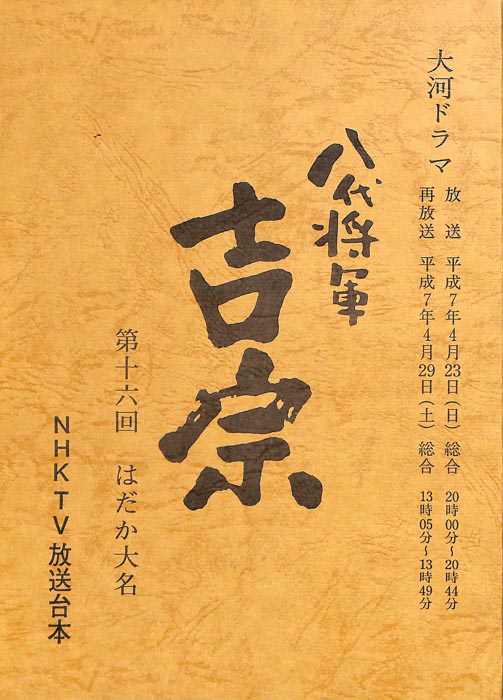 大河ドラマ
放送 平成7年4月23日(日) 総合 20時00分~20時44分
再放送 平成7年4月29日(土) 総合 13時05分~13時49分
八代将軍
吉宗
第十六回 はだか大名
NHK TV 放送台本